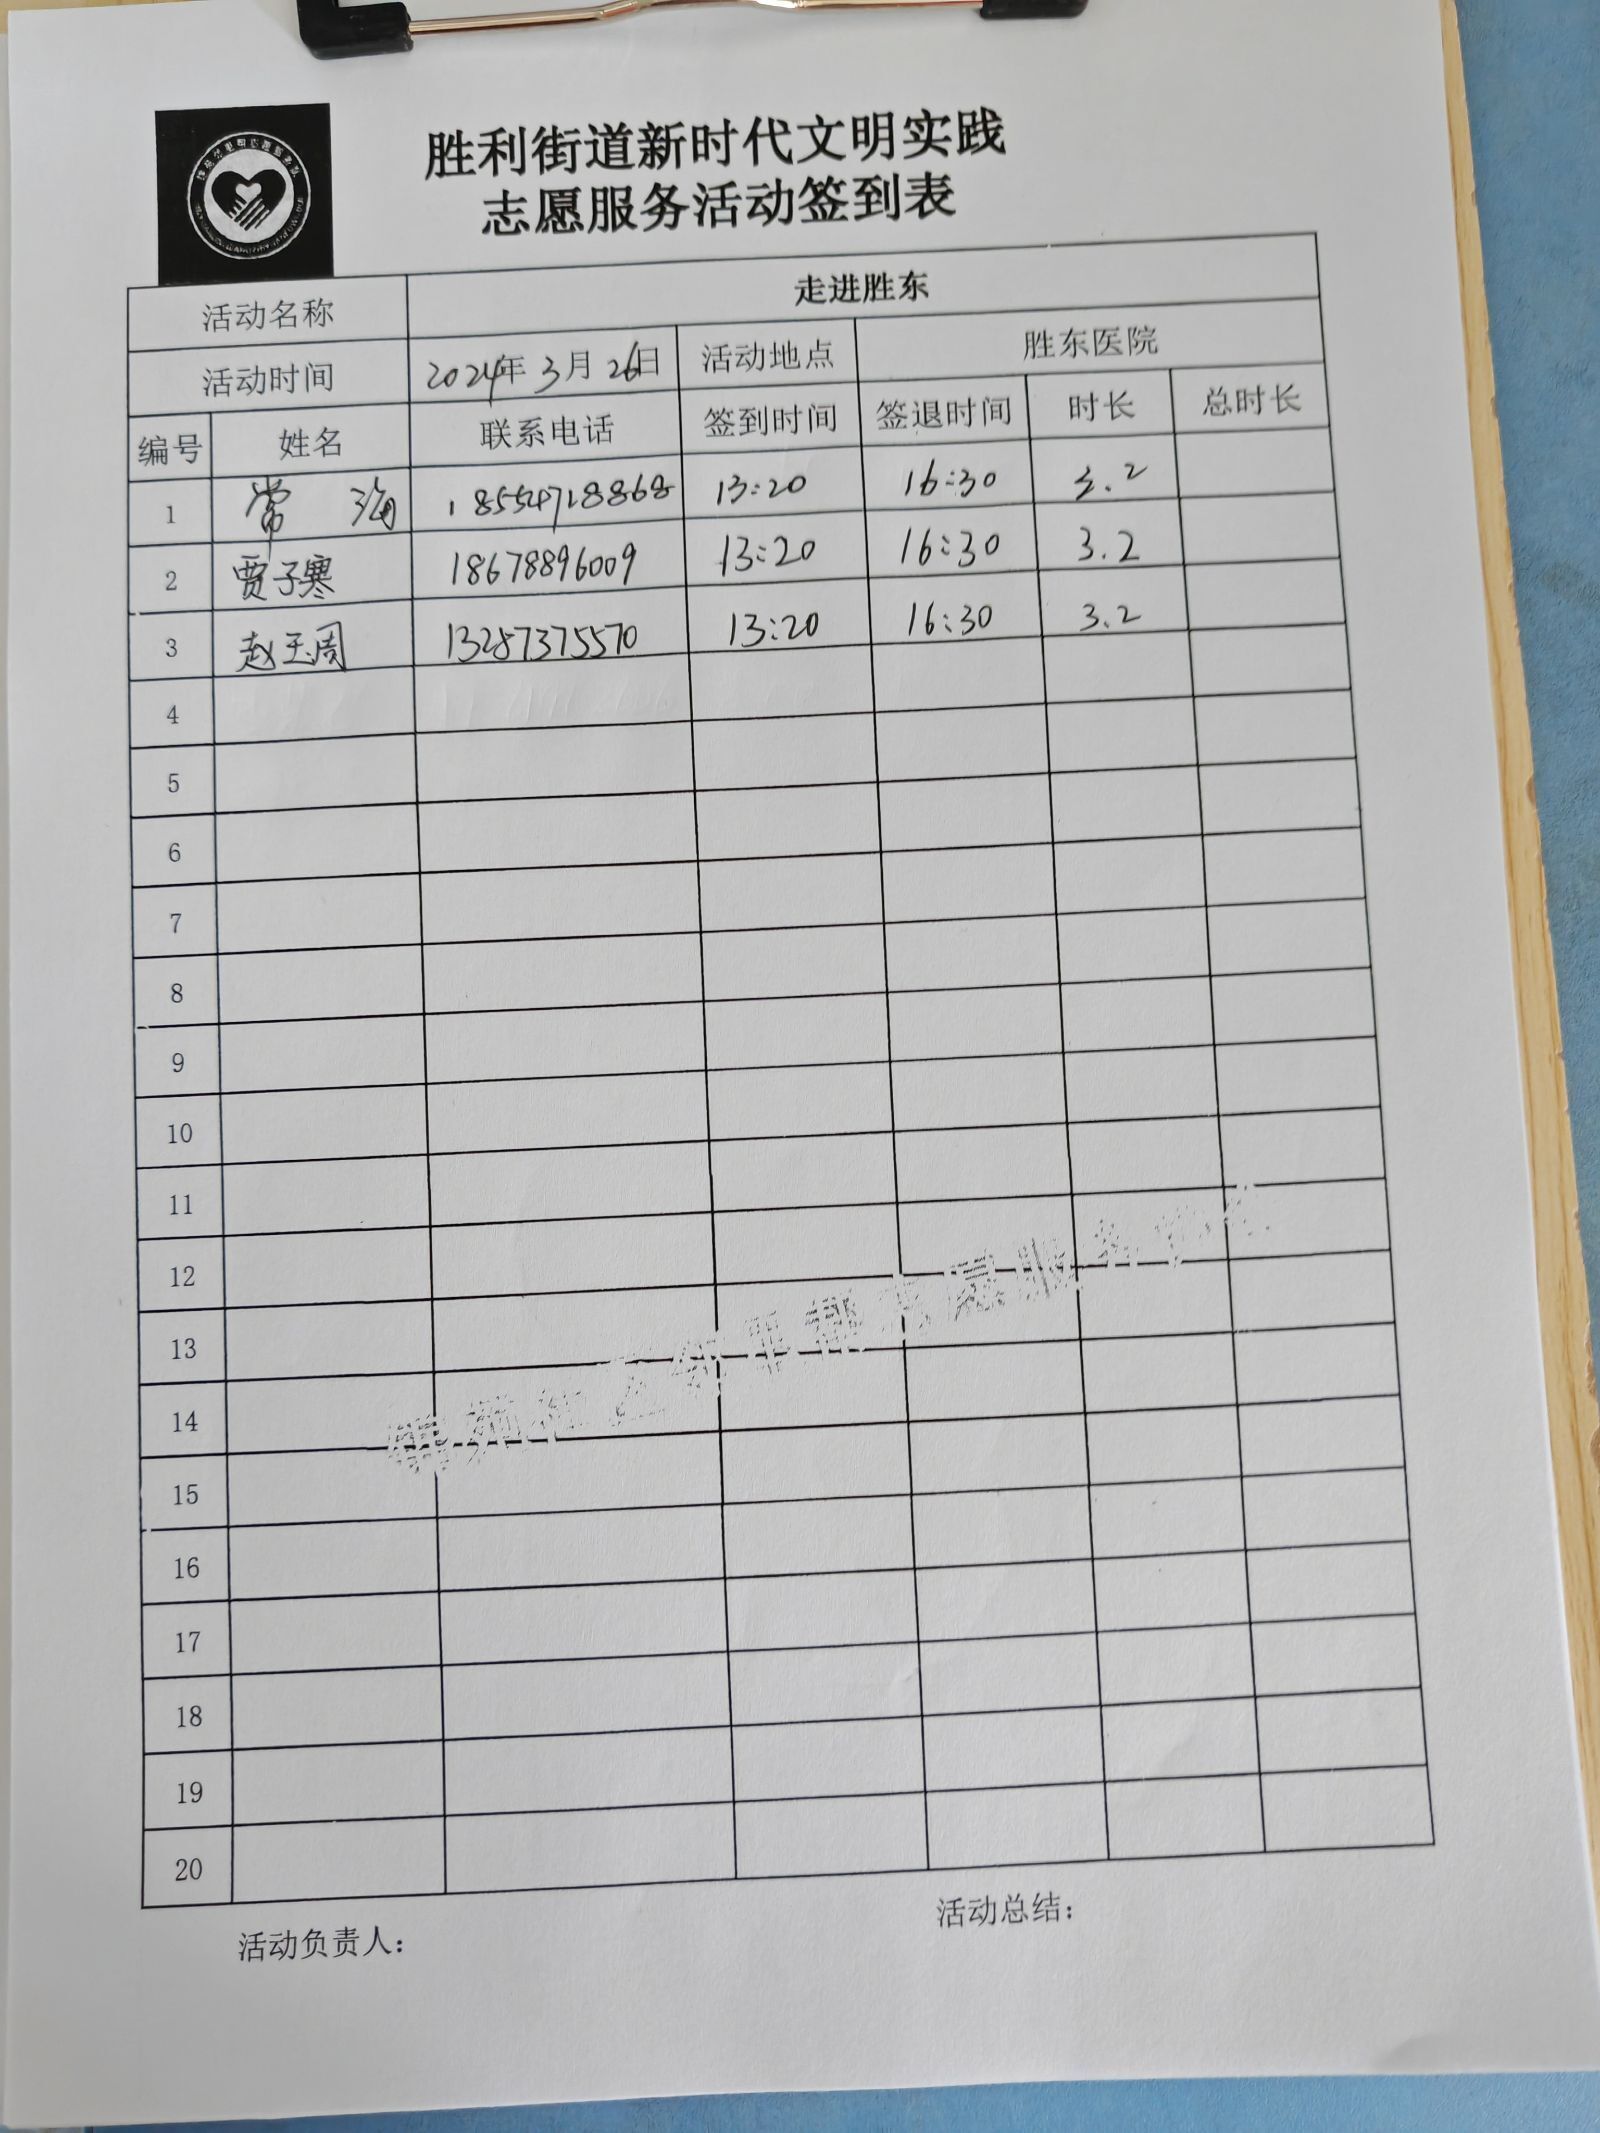 胜利街道新时代文明实践
志愿服务活动签到表
活动名称 走进胜东
活动时间 2024年 3月 26日 活动地点 胜东医院
编号 姓名 联系电话 签到时间 签退时间 时长 总时长
1 常 海 18554718868 13:20 16:30 3.2
2 贾子寒 18678896009 13:20 16:30 3.2
3 赵玉周 13287375570 13:20 16:30 3.2
4
5
6
7
8
9
10
11
12
13
14
15
16
17
18
19
20
活动负责人： 活动总结：